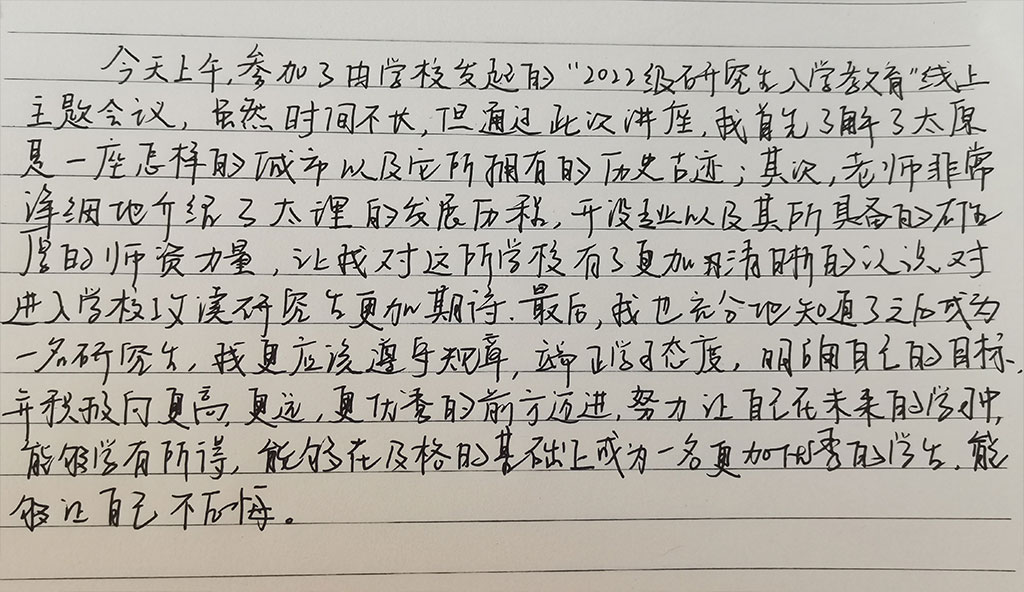 今天上午,参加了由学校发起的“2022级研究生入学教育”线上
主题会议,虽然时间不长,但通过此次讲座,我首先了解了太原
是一座怎样的城市以及它所拥有的历史古迹;其次,老师非常
详细地介绍了太理的发展历程,开设专业以及其所具备的
的师资力量,让我对这所学校有了更加清晰的认识,对
进入学校攻读研究生更加期待.最后,我也充分地知道了之后成为
一名研究生,我更应该遵守规章,端正学习态度,明确自己的目标,
并积极向更高,更远,更优秀的前方迈进,努力让自己在未来的学习中,
能够学有所得,能够在及格的基础上成为一名更加优秀的学生,能
够让自己不后悔。